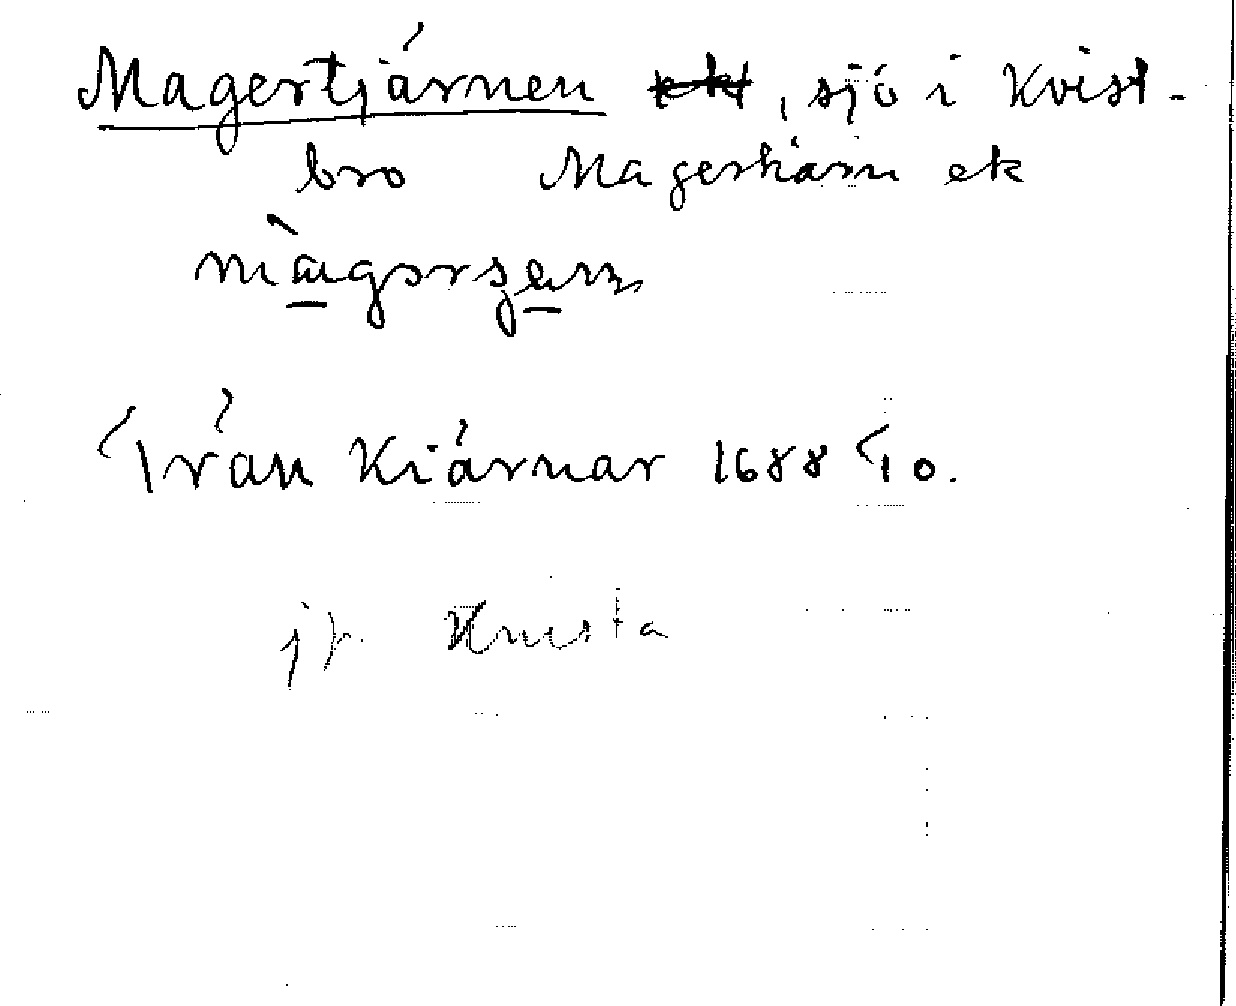 Magertjärnen ekt, sjö i Kvist-
bro Magertiärn ek
màgərʂæɳ
Från Kiärnar 1688 To.
jfr Knusta